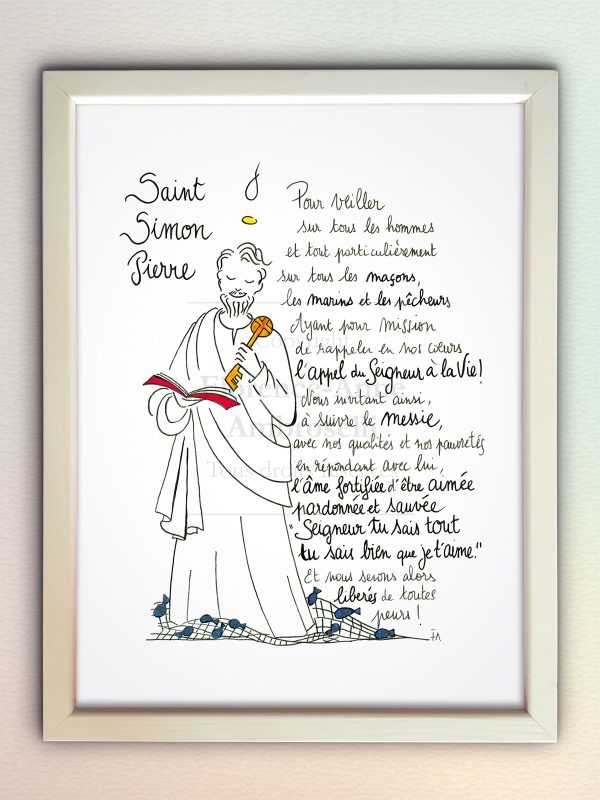 Saint
Simon
Pierre
Pour veiller
sur tous les hommes
et tout particulièrement
sur tous les maçons,
les marins et les pêcheurs
Ayant pour mission
de rappeler en nos cœurs
l'appel du Seigneur à la Vie!
Nous invitant ainsi,
à suivre le messie,
avec nos qualités et nos pauvretés
en répondant avec lui,
l'âme fortifiée d'être aimée
pardonnée et sauvée
"Seigneur tu sais tout
tu sais bien que je t'aime."
Et nous serons alors
libérés de toutes
peurs!
FA
Copyright
Florence-Ange
Ambroselli